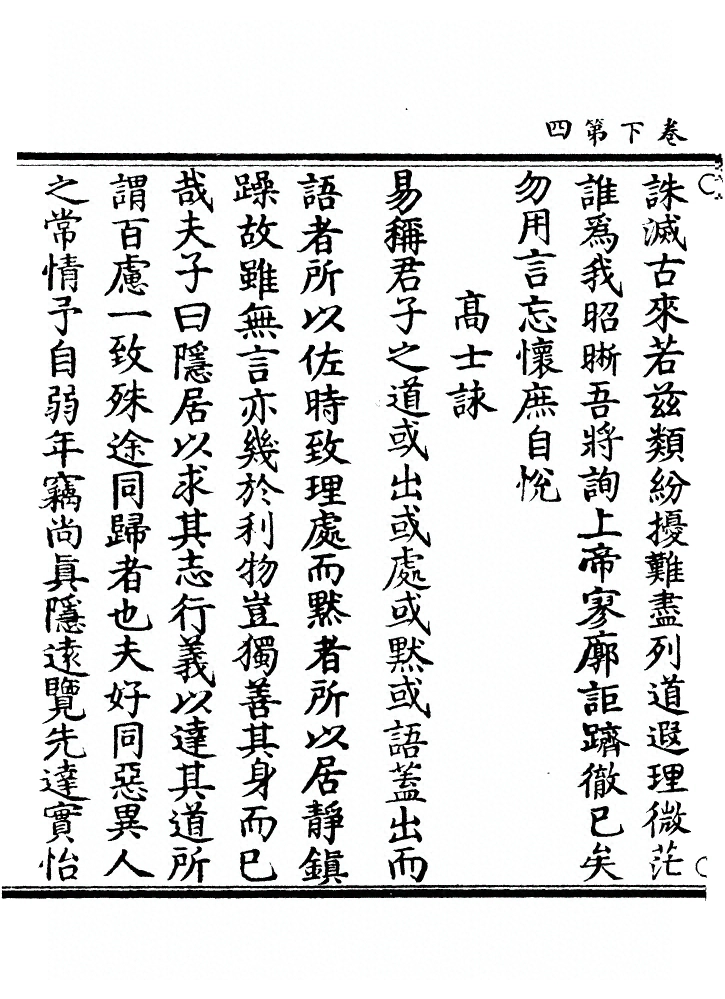 卷下第四
誅滅古來若茲類紛擾難盡列道遐理微茫
誰爲我昭晰吾將詢上帝寥廓詎躋徹已矣
勿用言忘懷庶自悅
高士詠
易稱君子之道或出或處或默或語蓋出而
語者所以佐時致理處而默者所以居靜鎭
躁故雖無言亦幾於利物豈獨善其身而已
哉夫子曰隱居以求其志行義以達其道所
謂百慮一致殊途同歸者也夫好同惡異人
之常情予自弱年竊尚眞隱遠覽先達實怡